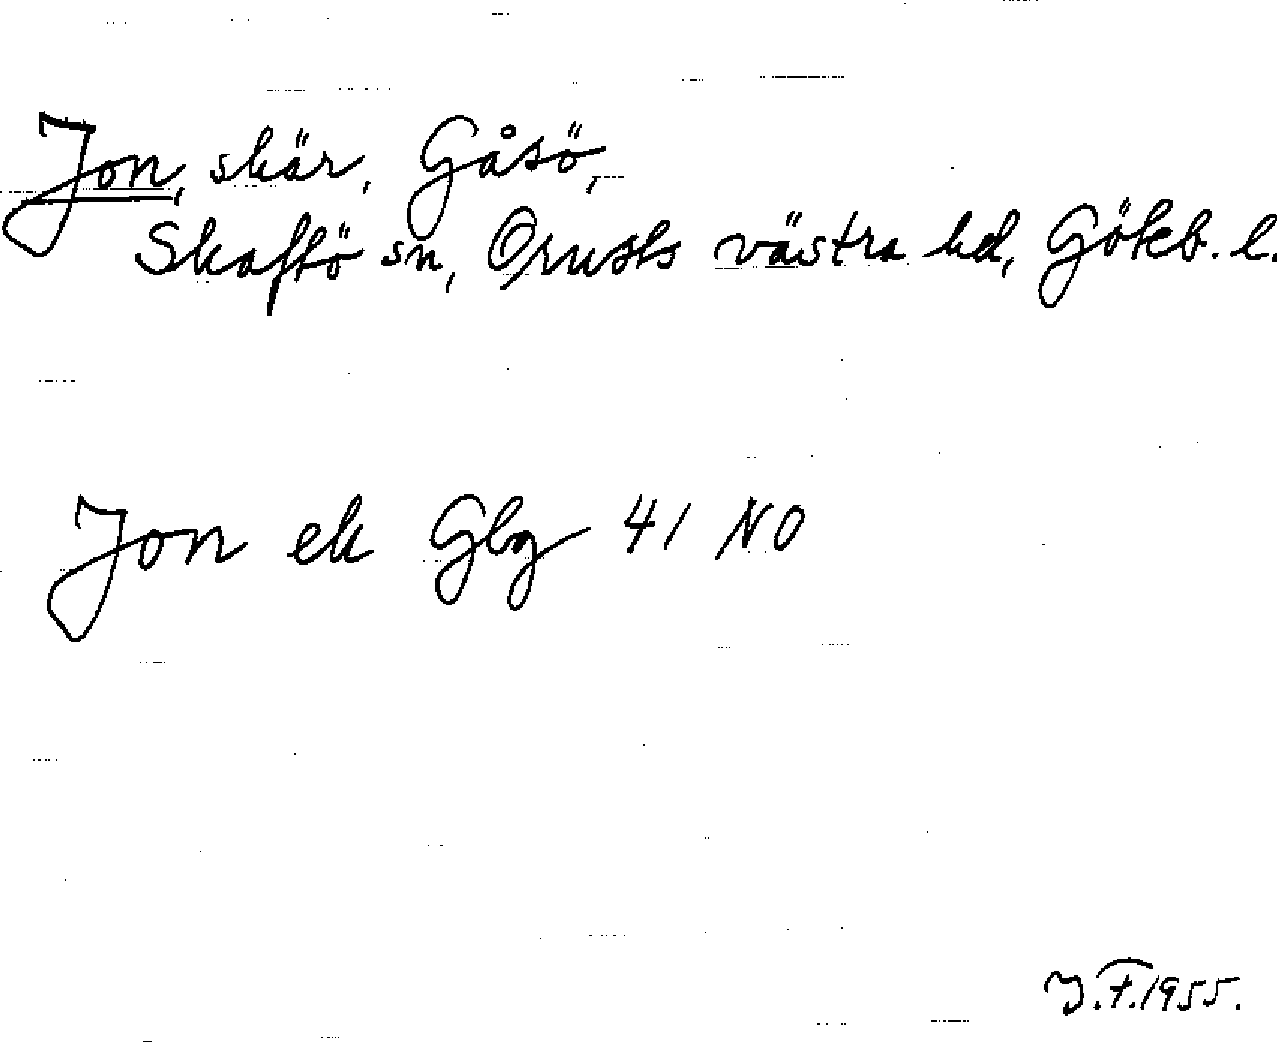 Jon, skär, Gåsö,
Skaftö sn, Orusts västra hd, Göteb. l.
Jon ek Gbg 41 NO
J.F. 1955.